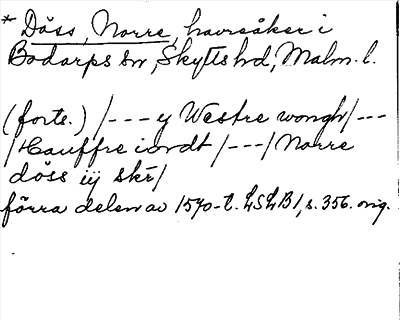 * Döss, Norre, havreåker i
Bodarps sn, Skytts hd, Malm. l.
(forts.) /--- y Westre wongh/---
/Hauffre iordt /---/ Norre
döss iij skr/
förra delen av 1570-t. LSLB1, s. 356. orig.